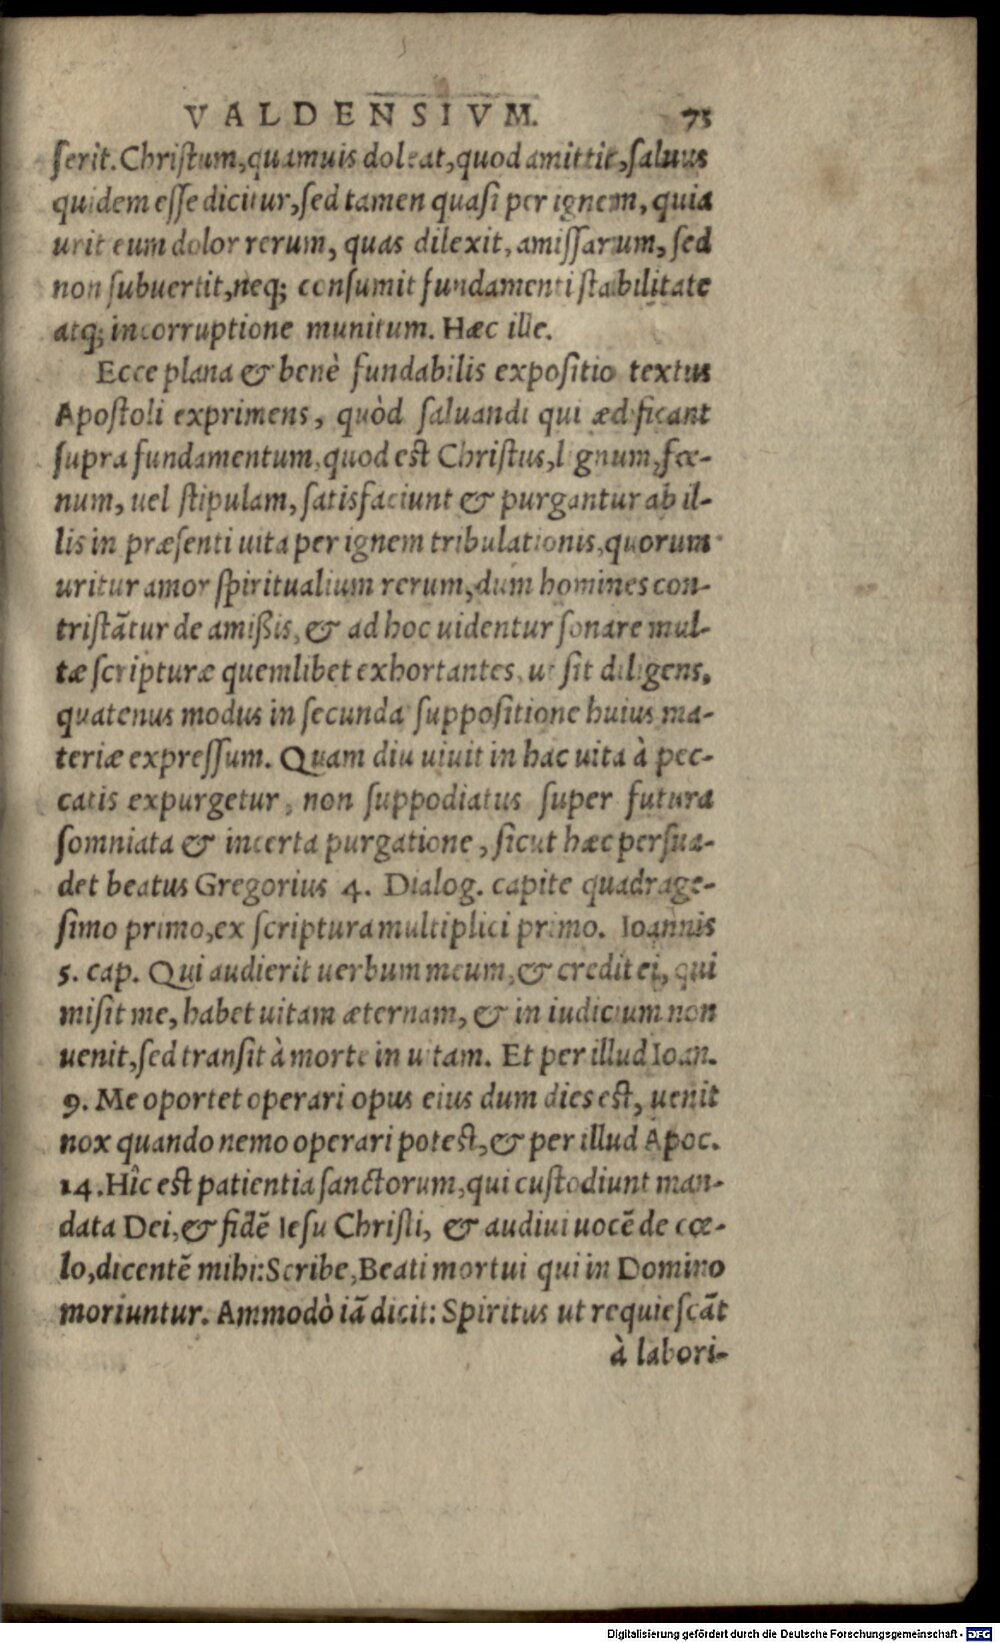 VALDENSIVM. 75
ſerit. Chriſtum, quamuis doleat, quod amittit, ſaluus
quidem eſſe dicitur, ſed tamen quaſi per ignem, quia
urit eum dolor rerum, quas dilexit, amiſſarum, ſed
non ſubuertit, neq; conſumit fundamenti ſtabilitate
atq; incorruptione munitum. Hæc ille.
Ecce plana & benè fundabilis expoſitio textus
Apoſtoli exprimens, quòd ſaluandi qui ædificant
ſupra fundamentum, quod eſt Chriſtus, lignum, fœ-
num, uel ſtipulam, ſatisfaciunt & purgantur ab il-
lis in præſenti uita per ignem tribulationis, quorum
uritur amor ſpiritualium rerum, dum homines con-
triſtãtur de amißis, & ad hoc uidentur ſonare mul-
tæ ſcripturæ quemlibet exhortantes, ut ſit diligens,
quatenus modus in ſecunda ſuppoſitione huius ma-
teriæ expreſſum. Quam diu uiuit in hac uita à pec-
catis expurgetur, non ſuppodiatus ſuper futura
ſomniata & incerta purgatione, ſicut hæc perſua-
det beatus Gregorius 4. Dialog. capite quadrage-
ſimo primo, ex ſcriptura multiplici primo. Ioannis
5. cap. Qui audierit uerbum meum, & credit ei, qui
miſit me, habet uitam æternam, & in iudicium non
uenit, ſed tranſit à morte in uitam. Et per illud Ioan.
9. Me oportet operari opus eius dum dies eſt, uenit
nox quando nemo operari poteſt, & per illud Apoc.
14. Hîc eſt patientia ſanctorum, qui cuſtodiunt man-
data Dei, & fidẽ Ieſu Chriſti, & audiui uocẽ de cœ-
lo, dicentẽ mihi: Scribe, Beati mortui qui in Domino
moriuntur. Ammodò iã dicit: Spiritus ut requieſcãt
à labori-
Digitalisierung gefördert durch die Deutsche Forschungsgemeinschaft - DFG